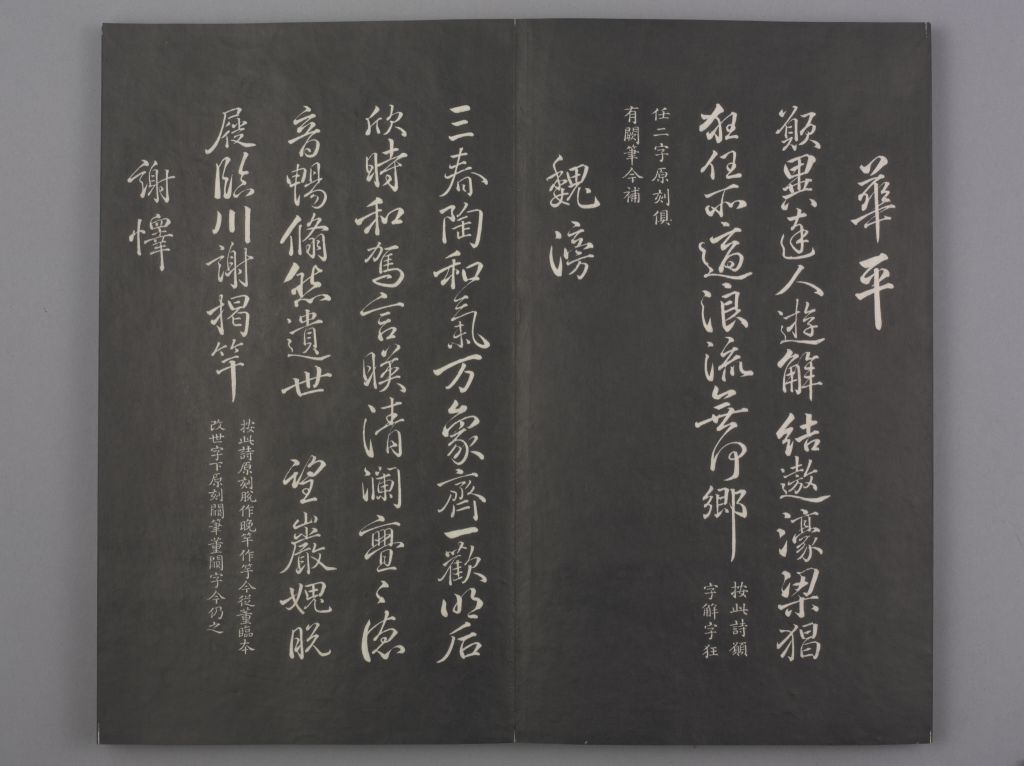 華平
願異達人遊解結遨濠梁猖
狂任所適浪流無何鄉
按此詩願
字解字狂
任二字原刻俱
有闕筆今補
魏滂
三春陶和氣万象齊一歡明后
欣時和駕言暎清瀾亹〻德
音暢翛然遺世 望巖愧脫
屣臨川謝揭竿
按此詩原刻脫作晚竿作竽今從董臨本
改世字下原刻闕筆董闕字今仍之
謝懌